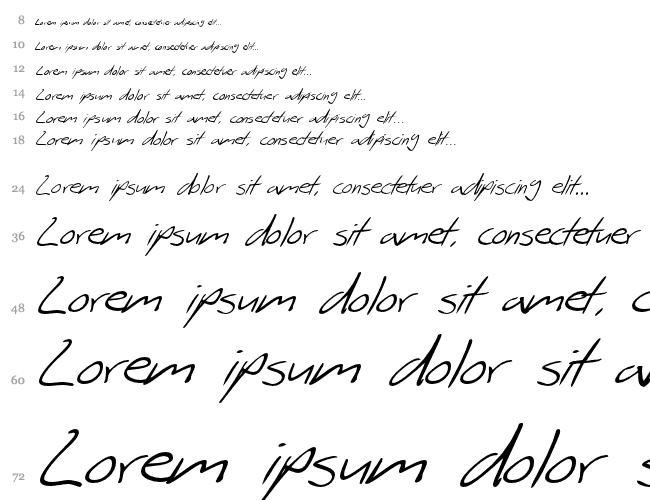 8 Lorem ipsum dolor sit amet, consectetuer adipiscing elit...
10 Lorem ipsum dolor sit amet, consectetuer adipiscing elit...
12 Lorem ipsum dolor sit amet, consectetuer adipiscing elit...
14 Lorem ipsum dolor sit amet, consectetuer adipiscing elit...
16 Lorem ipsum dolor sit amet, consectetuer adipiscing elit...
18 Lorem ipsum dolor sit amet, consectetuer adipiscing elit...
24 Lorem ipsum dolor sit amet, consectetuer adipiscing elit...
36 Lorem ipsum dolor sit amet, consectetuer
48 Lorem ipsum dolor sit amet, c
60 Lorem ipsum dolor sit a
72 Lorem ipsum dolor s